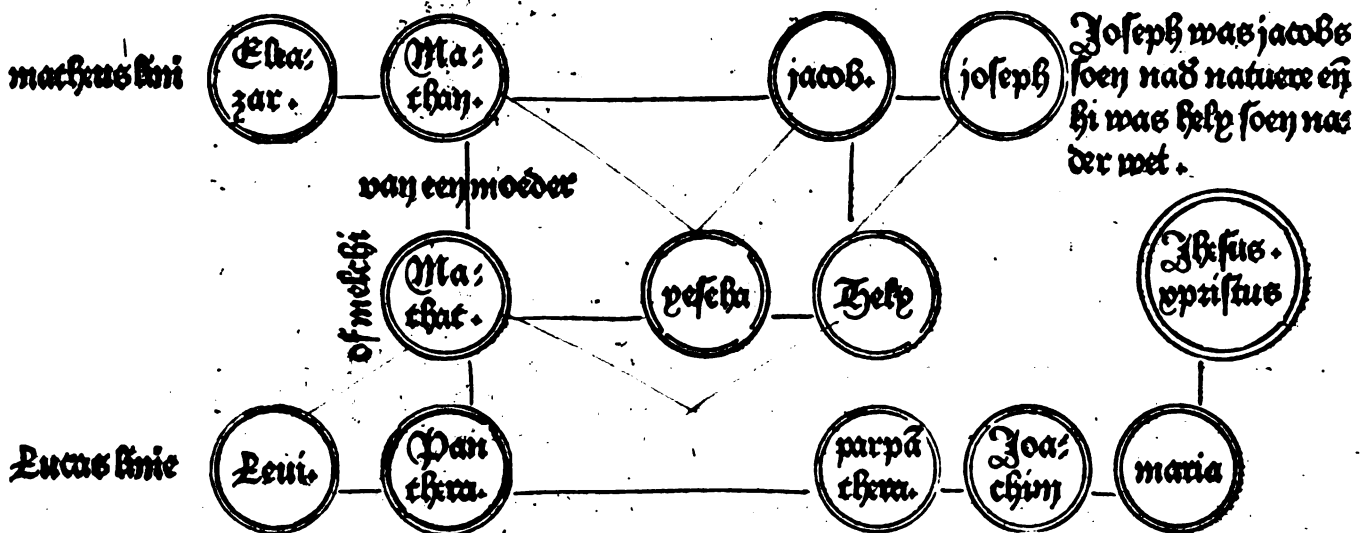 matheus lini
Elea⸗
zar.
Ma⸗
than.
jacob.
joseph
Joseph was jacobs
soen nad natuere eñ
hi was hely soen na⸗
der wet.
van een moeder
of melchi
Ma⸗
that.
yescha
Hely
Jhesus.
xpristus
Lucas linie
Leui.
Pan
thera.
parpā
thera.
Joa⸗
chim
maria